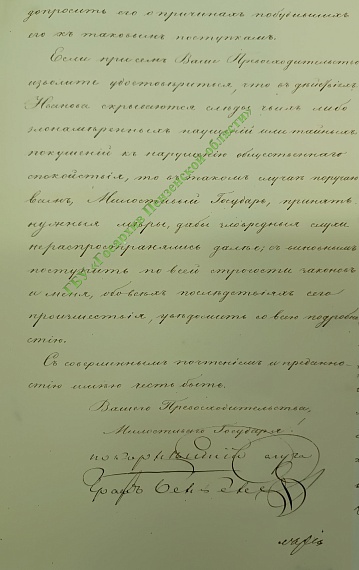 допросить его о причинахъ побудившихъ
его къ таковымъ поступкамъ.
Если при семъ Ваше Превосходительство
изволите удостовѣриться, что въ дѣйствіяхъ
Иванова скрываются слѣды чьихъ либо
злонамѣренныхъ внушеній или тайныхъ
покушеній къ нарушенію общественнаго
спокойствія, то въ такомъ случаѣ поручаю
Вамъ, Милостивый Государь, принять
нужныя мѣры, дабы зловредные слухи
нераспространялись далѣе; съ виновнымъ
поступить по всей строгости законовъ
и меня, обо всѣхъ послѣдствіяхъ сего
произшествія, увѣдомить со всею подробно
стію.
Съ совершеннымъ почтеніемъ и преданно-
стію имѣю честь быть.
Вашего Превосходительства,
Милостиваго Государя!
покорнѣйшій слуга
Графъ Бенкендорфъ
ГБУ «Госархив Пензенской области»